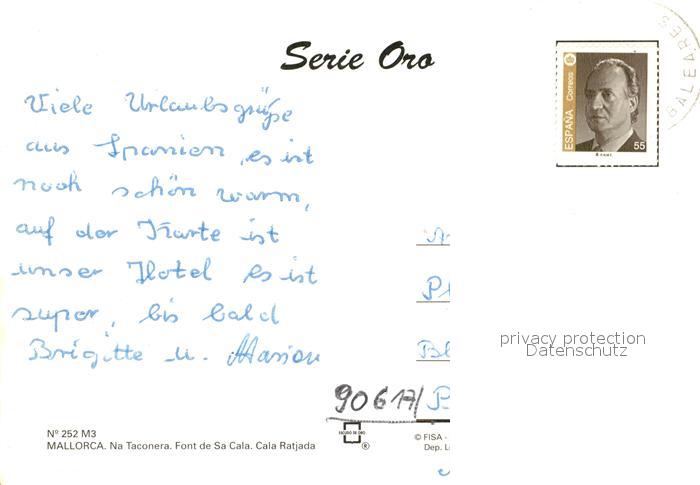 Serie Oro
BALEARES
ESPAÑA Correos
55
Viele Urlaubsgrüße
aus Spanien, es ist
noch schön warm,
auf der Karte ist
unser Hotel es ist
super, bis bald
Brigitte u. Marion
Pl
Bl
90617/
privacy protection
Datenschutz
Nº 252 M3
MALLORCA. Na Taconera. Font de Sa Cala. Cala Ratjada
ESCUDO DE ORO
®
© FISA -
Dep. L